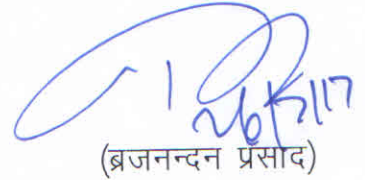 26/5/17
(ब्रजनन्दन प्रसाद)